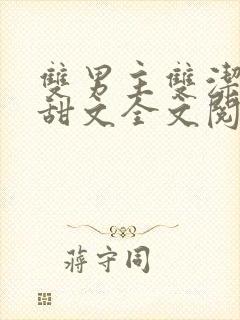 雙男主雙潔
甜文全文閱
蔣守同